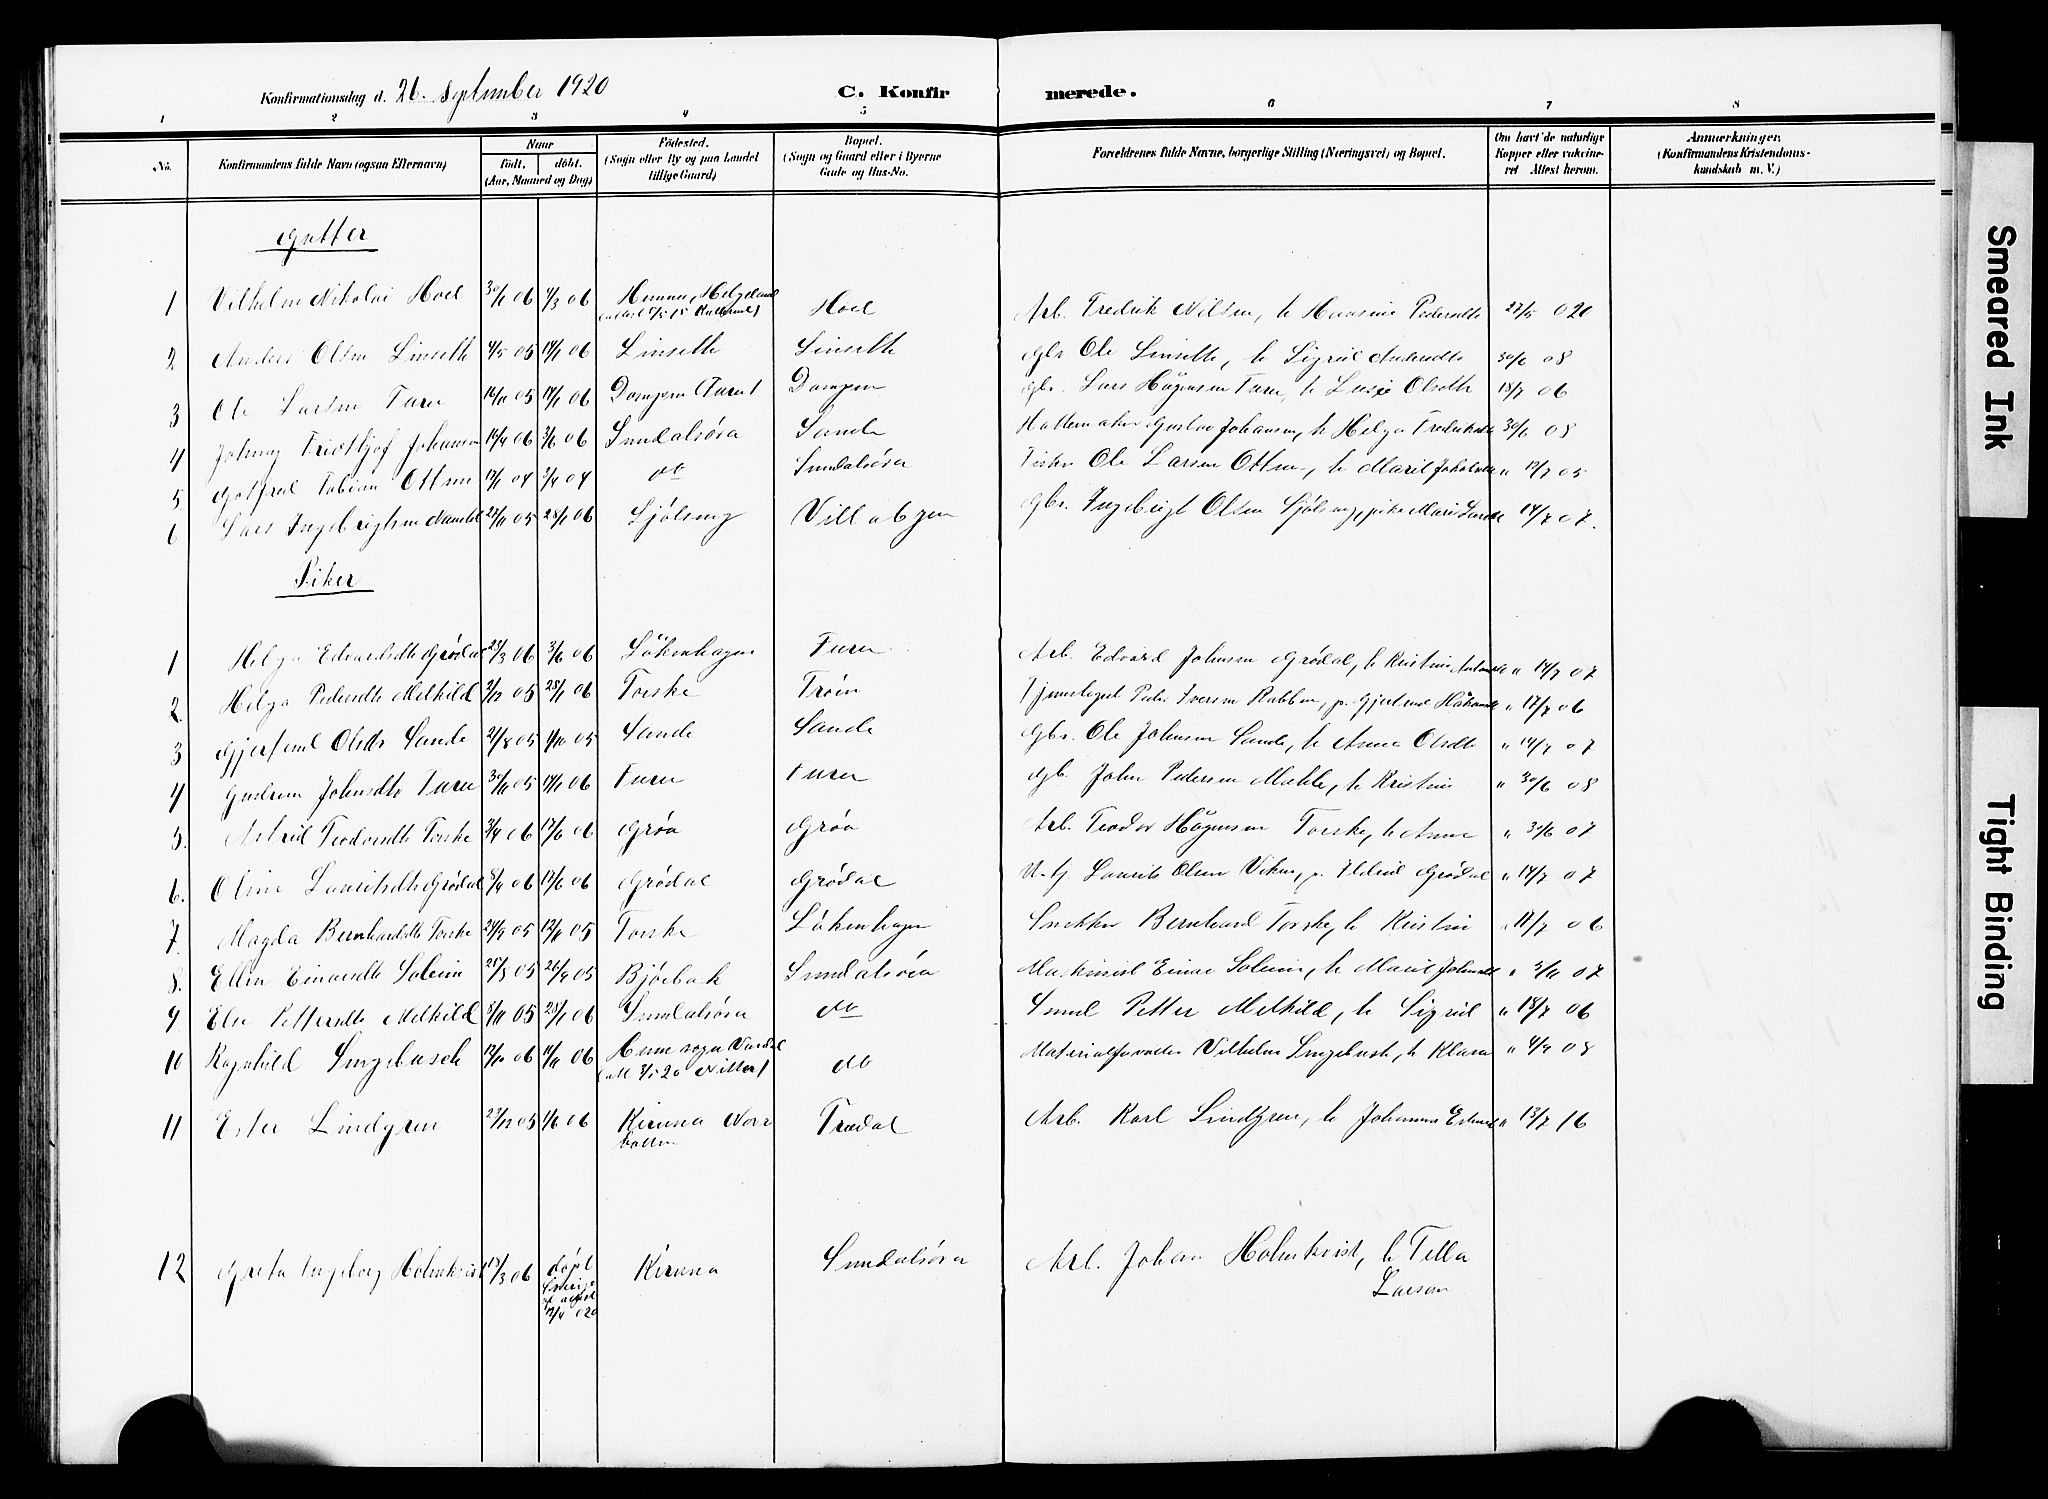 Konfirmationsdag d. 26. September 1920 C. Konfirmerede.
1 2 3 4 5 6 7 8
No. Konfirmandens fulde Navn (ogsaa Efternavn) Naar født, døbt. (Aar, Maaned og Dag) Fødested. (Sogn eller By og paa Landet tillige Gaard) Bopæl. (Sogn og Gaard eller i Byerne Gade og Hus-No. Forældrenes fulde Navne, borgerlige Stilling (Næringsvei) og Bopæl. Om havt de naturlige Kopper eller vakcineret Attest herom. Anmærkninger. (Konfirmandens Kristendomskundskab m. V.)
Gutter
1 Vilhelm Nikolai Hoel 30/1 06 4/3 06 Hemnes, Helgeland Hoel Arb. Fredrik Nilsen, h Hansine Pedersdtr 27/5 020
2 Anders Olsen Linseth 4/5 05 14/1 06 Linseth Linseth Gbr Ole Linseth, h Sigrid Andersdtr 30/6 08
3 Ole Larsen Furu 16/11 05 14/1 06 Dompen (Furu) Dompen Gbr. Lars Høgensen Furu, h Lusie Olsdtr 18/7 06
4 Johnny Fridthjof Johansen 14/4 06 3/6 06 Sundalsøra Sande Hattemaker Gustav Johansen, h Helga Fredriksdtr 30/6 08
5 Gotfred Tobias Ottem 17/1 04 3/4 04 do Sundalsøra Fisker Ole Larsen Ottem, h Marit " 19/7 05
6 Lars Ingebrigtsen 27/11 05 28/1 06 Sjølseng Villabyen Gbr. Ingebrigt Olsen Sjølseng, pike Marit 14/7 07.
Piker
1 Helga Edvardsdtr Grødal 23/3 06 3/6 06 Løkenhagen Furu Arb. Edvard Johnsen Grødal, h Kristine " 14/7 07
2. Helga Pedersdtr Melkild 2/12 05 28/1 06 Torske Trøen Peder Iversen Rabben, p. Gjertrud " 17/7 06
3 Gjertrud Olsdtr Sande 21/8 05 1/10 05 Sande Sande Gbr. Ole Johnsen Sande, h Anne Olsdtr " 14/7 07
4 Gudrun Johnsdtr Furu 30/11 05 14/1 06 Furu Furu Gb. John Pedersen Mahle, h Kristine " 30/6 08
5. Astrid Teodorsdtr Torske 3/4 06 17/6 06 Grøa Grøa Arb. Teodor Høgensen Torske, h Anne " 30/6 07
6. Oline Lauritsdtr Grødal 8/4 06 17/6 06 Grødal Grødal Laurits Olsen Viken, p. Eldrid Grødal " 14/7 07
7. Magda Bernhardsdtr Torske 24/9 05 12/11 05 Torske Løkenhagen Snekker Bernhard Torske, h Kristin " 11/7 06
8. Ellen Einarsdtr Soleim 25/8 05 26/9 05 Bjørbak Sundalsøra Maskinist Einar Soleim, h Marit " 3/11 07
9 Else Pettersdtr Melkild 5/11 05 28/1 06 Sundalsøra do Smed Petter Melkild, h Sigrid " 18/7 06
10 Ragnhild Singebusch 12/10 06 11/11 06 Hem sogn do Materialforvalter Vilhelm Singebusch, h Klara " 4/9 08
(att 3/5 20 )
11 Ester Lindgren 23/12 05 1/6 06 Kiruna Norr Trædal Arb. Karl Lindgren, h Johanna " 13/7 16
botten
12 Greta Ingeborg Holmkvist 15/3 06 døpt Kiruna Sundalsøra Arb. Johan Holmkvist, h Tella
Larson
12/4 020